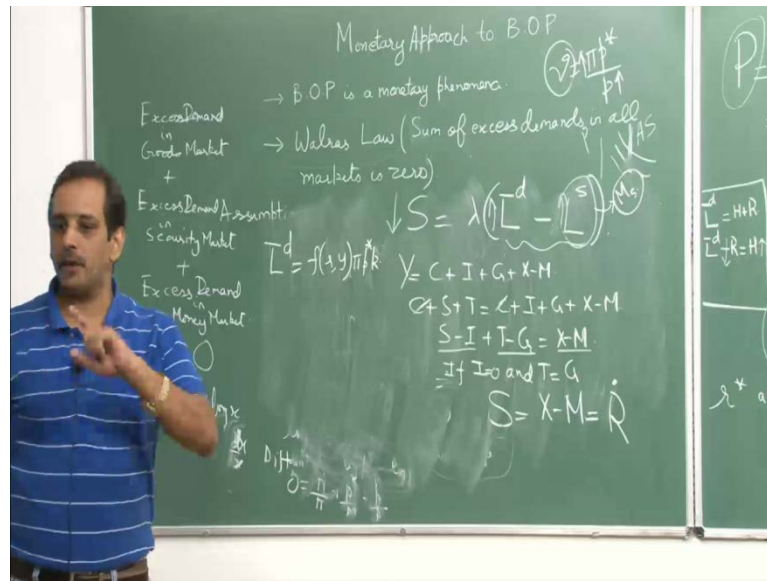 Monetary Approach to B.O.P
→ B.O.P is a monetary phenomena.
→ Walras Law (Sum of excess demands in all
markets is zero)
↑πP*
P↑
AS
Excess Demand
in
Goods Market
+
Excess Demand Assumpti
in
Security Market
+
Excess Demand
in
Money Market
0
log x
↓ S = λ(↑L^d - L^s) → Ms
L^d = f(r,y)πp*k
Y = C + I + G + X-M
C+S+T = C+I+G+X-M
S-I + T-G = X-M
If I=0 and T=G
S = X-M = Ṙ
P=
L^d = H+R
L^d - R = H↑
r* a